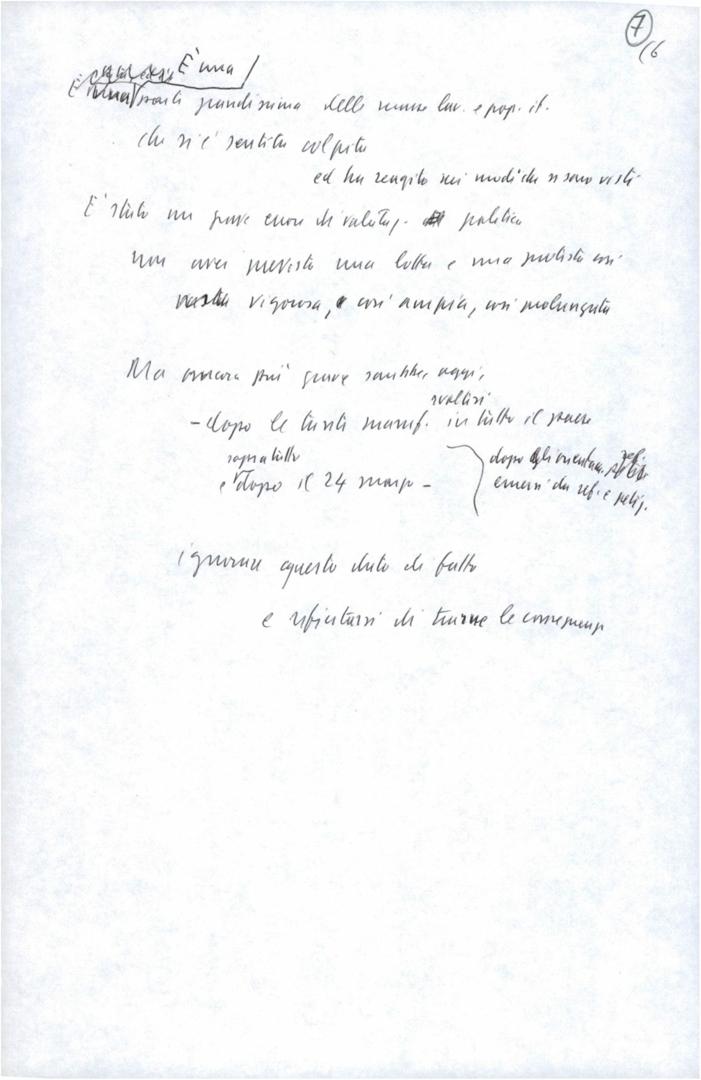 7
16
È una
parte grandissima delle masse lav. e pop. it.
che si è sentita colpita
ed ha reagito nei modi che si sono visti
È stato un grave errore di valutaz. politica
non aver previsto una lotta e una protesta così
vigorosa, così ampia, così prolungata
Ma ancora più grave sarebbe, oggi,
svoltesi
- dopo le tante manif. in tutto il paese
sopratutto
e dopo il 24 marzo -
dopo gli orientam.
emersi da
ignorare questo dato di fatto
e rifiutarsi di trarne le conseguenze